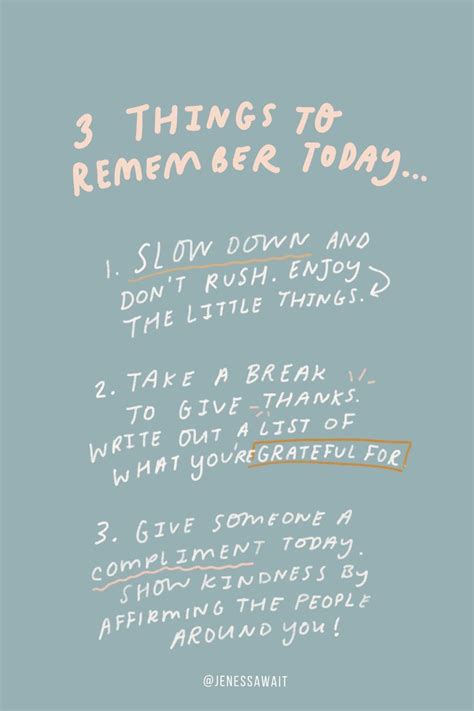 3 THINGS TO
REMEMBER TODAY...
1. SLOW DOWN AND
DON'T RUSH. ENJOY
THE LITTLE THINGS.
2. TAKE A BREAK
TO GIVE THANKS.
WRITE OUT A LIST OF
WHAT YOU'RE GRATEFUL FOR
3. GIVE SOMEONE A
COMPLIMENT TODAY.
SHOW KINDNESS BY
AFFIRMING THE PEOPLE
AROUND YOU!
@JENESSAWAIT